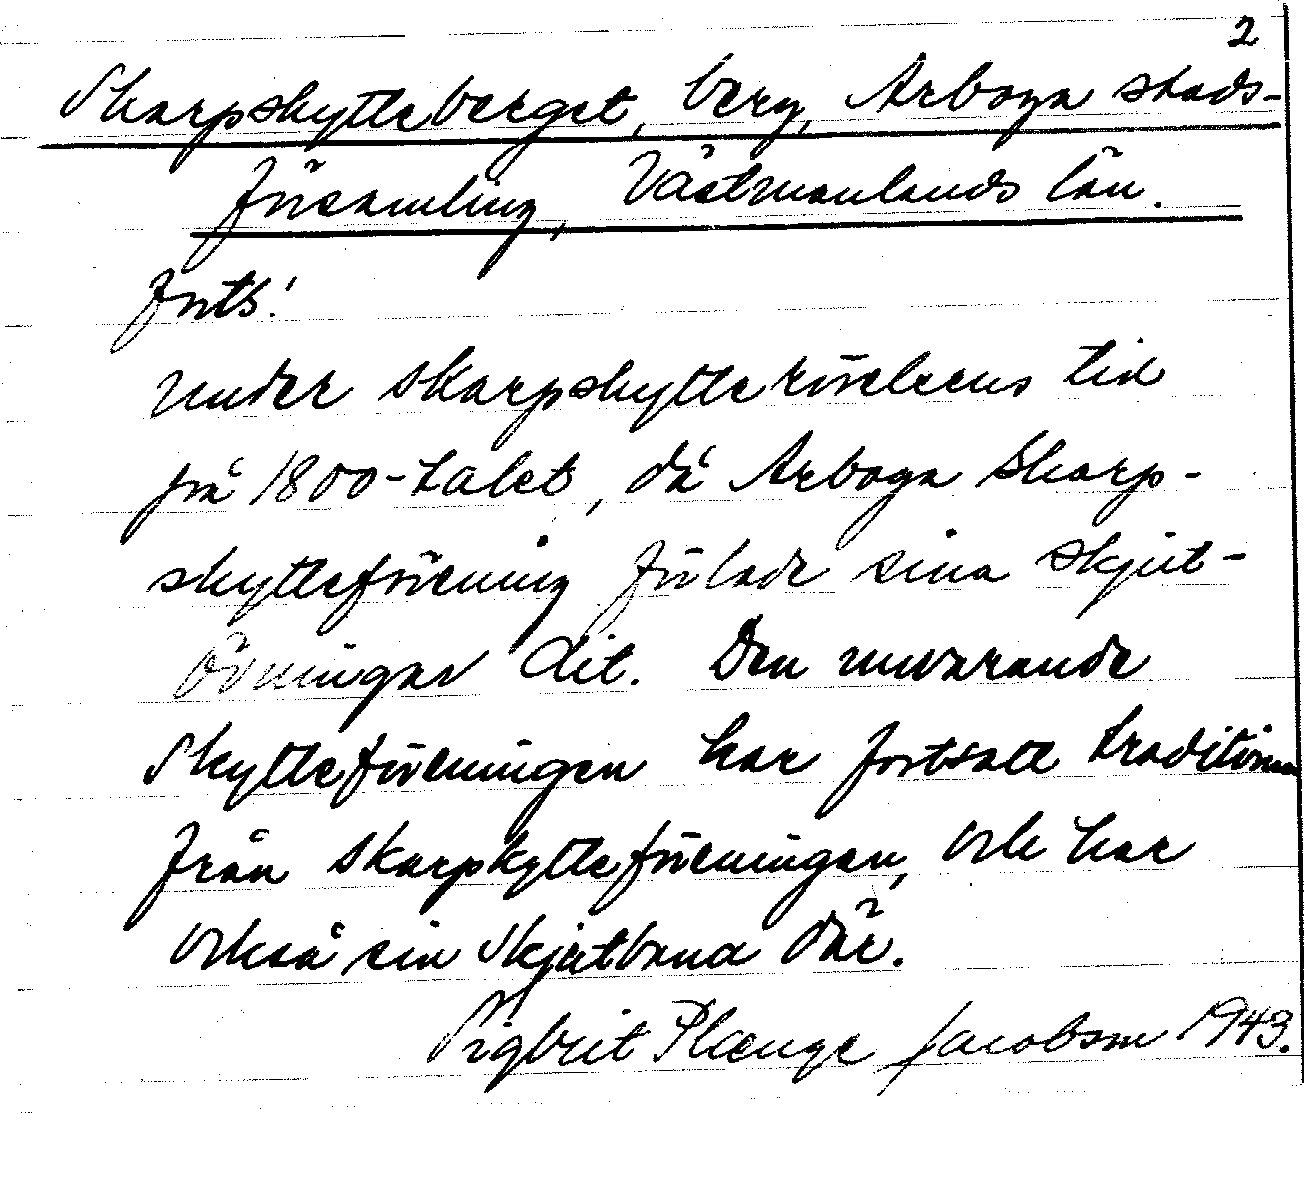 2
Skarpskytteberget, berg, Arboga stads-
församling, Västmanlands län.
forts!
under skarpskytterörelsens tid
på 1800-talet, då Arboga Skarp-
skytteförening förlade sina skjut-
övningar dit. Den nuvarande
Skytteföreningen har fortsatt traditionen
från skarpkytteföreningen, och har
också sin skjutbana där.
Sigbrit Plænge Jacobson 1943.